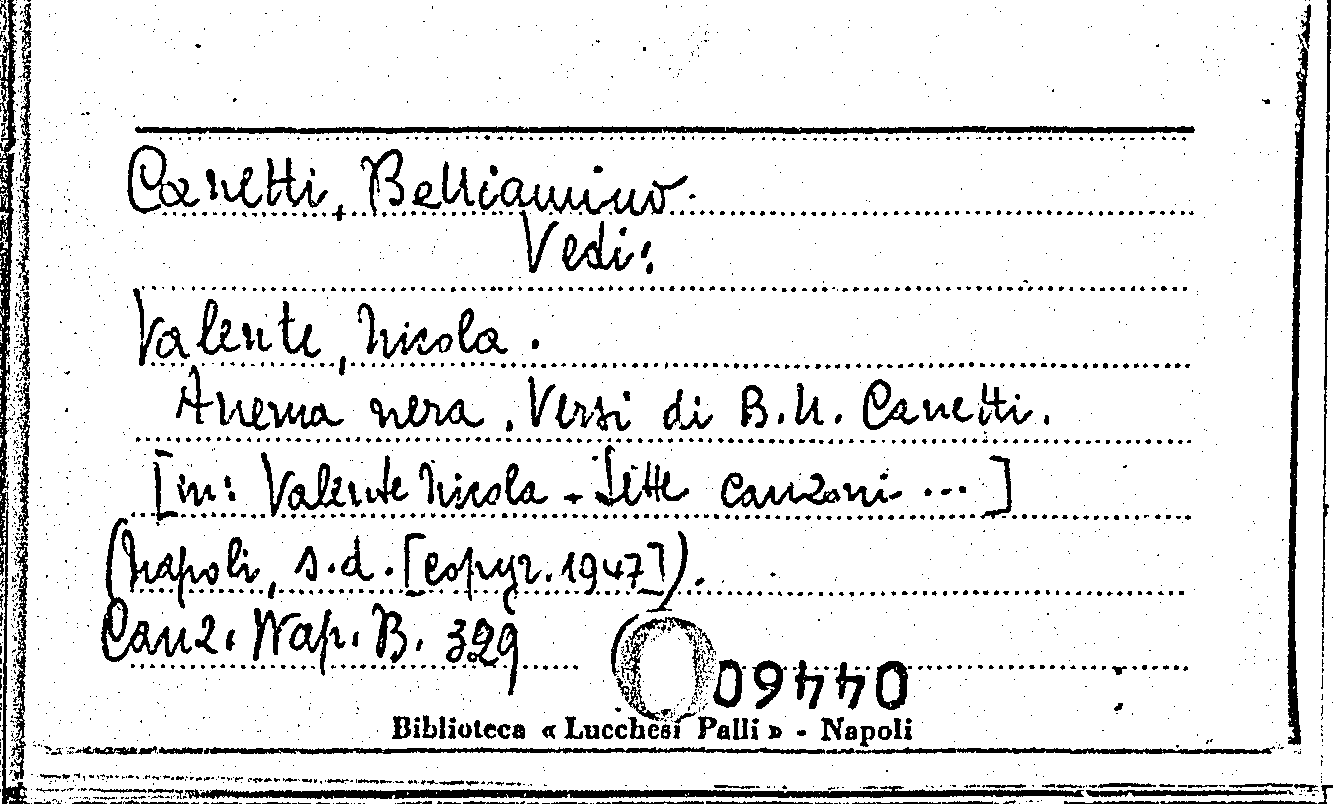 Canetti, Beniamino.
Vedi:
Valente, Nicola.
Anema nera. Versi di B.N. Canetti.
[in: Valente Nicola - Sette canzoni ...]
(Napoli, s.d. [copyr. 1947]).
Canz. Nap. B. 329
04460
Biblioteca « Lucchesi Palli » - Napoli